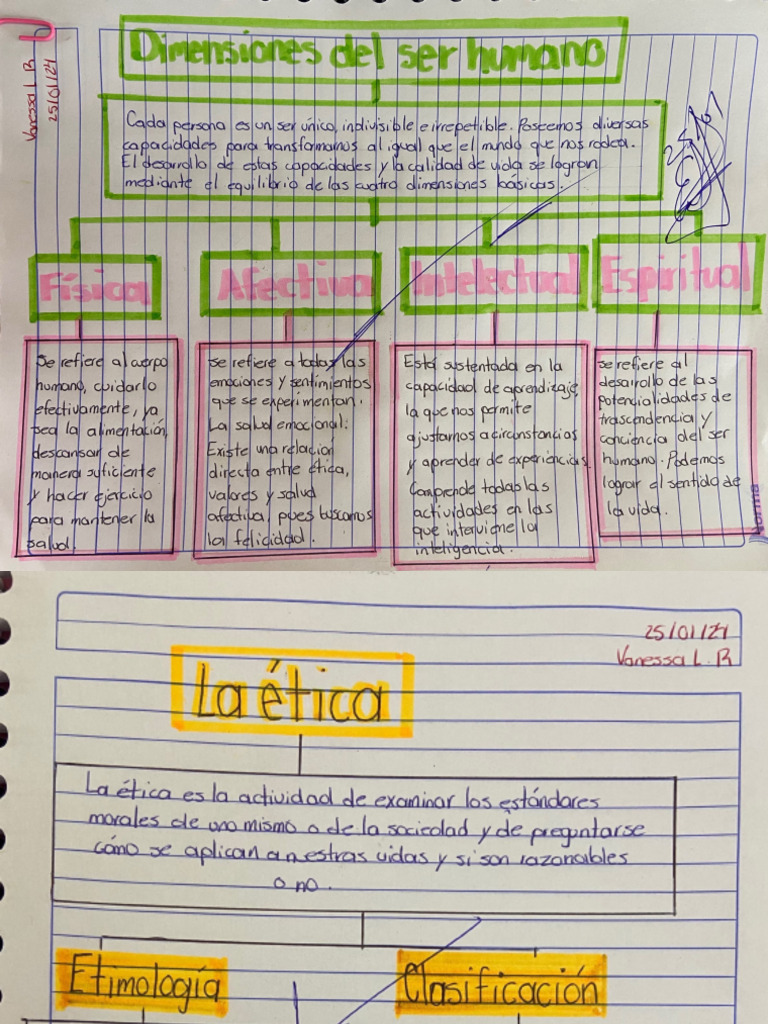 Vanessa L. R
25/01/24
Dimensiones del ser humano
Cada persona es un ser único, indivisible e irrepetible. Poseemos diversas
capacidades para transformarnos al igual que el mundo que nos rodea.
El desarrollo de estas capacidades y la calidad de vida se logran
mediante el equilibrio de las cuatro dimensiones básicas.
Física
Afectiva
Intelectual
Espiritual
Se refiere al cuerpo
humano, cuidarlo
efectivamente, ya
sea la alimentación,
descansar de
manera suficiente
y hacer ejercicio
para mantener la
salud.
Se refiere a todas las
emociones y sentimientos
que se experimentan.
La salud emocional:
Existe una relación
directa entre ética,
valores y salud
afectiva, pues buscamos
la felicidad.
Está sustentada en la
capacidad de aprendizaje,
la que nos permite
ajustarnos a circunstancias
y aprender de experiencias.
Comprende todas las
actividades en las
que interviene la
inteligencia.
se refiere al
desarrollo de las
potencialidades de
trascendencia y
conciencia del ser
humano. Podemos
lograr el sentido de
la vida.
Norma
25/01/24
Vanessa L. R
La ética
La ética es la actividad de examinar los estándares
morales de uno mismo o de la sociedad y de preguntarse
cómo se aplican a nuestras vidas y si son razonables
o no.
Etimología
Clasificación